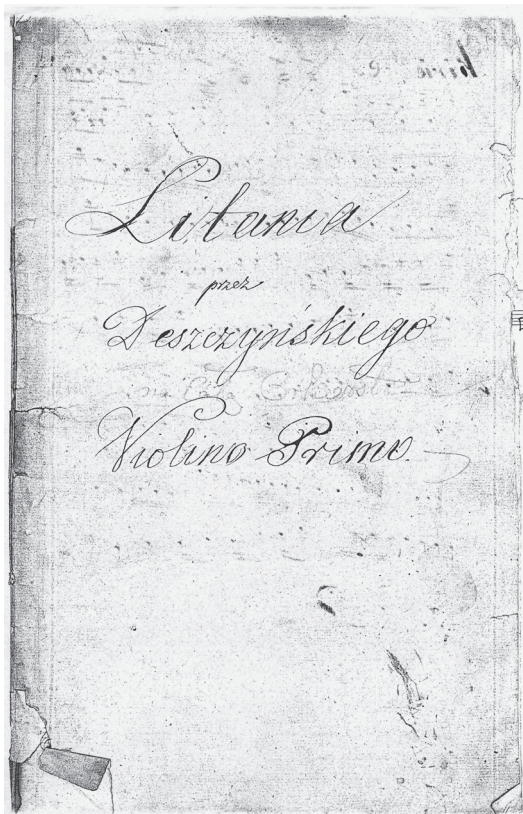 Litania
przez
Deszczyńskiego
Violino Primo.